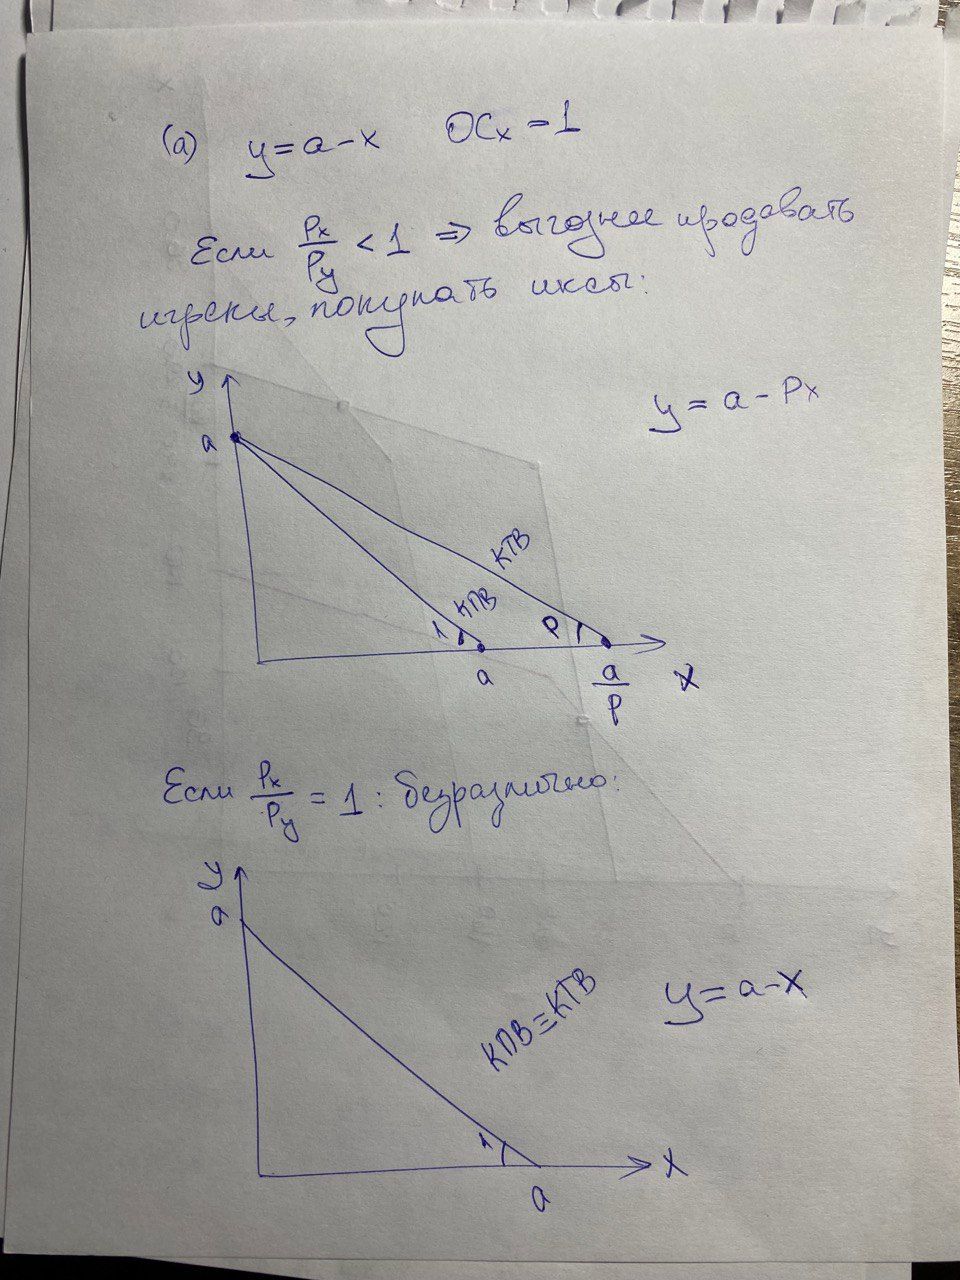 (а) y = a - x OCx = 1
Если Px/Py < 1 ⇒ выгоднее продавать
игреки, покупать иксы:
y
y = a - Px
a
КТВ
КПВ
1 P
a a/P x
Если Px/Py = 1 : безразлично:
y
a
КПВ ≡ КТВ y = a - x
1
a x